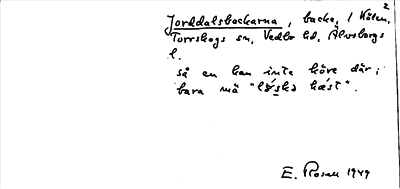 2
Jorddalsbackarna, backe, i Kölen,
Torrskogs sn, Vedbo hd, Älvsborgs
l.
så en kan inte köre där i
bara mä "löskə hæst".
E. Rosen 1949